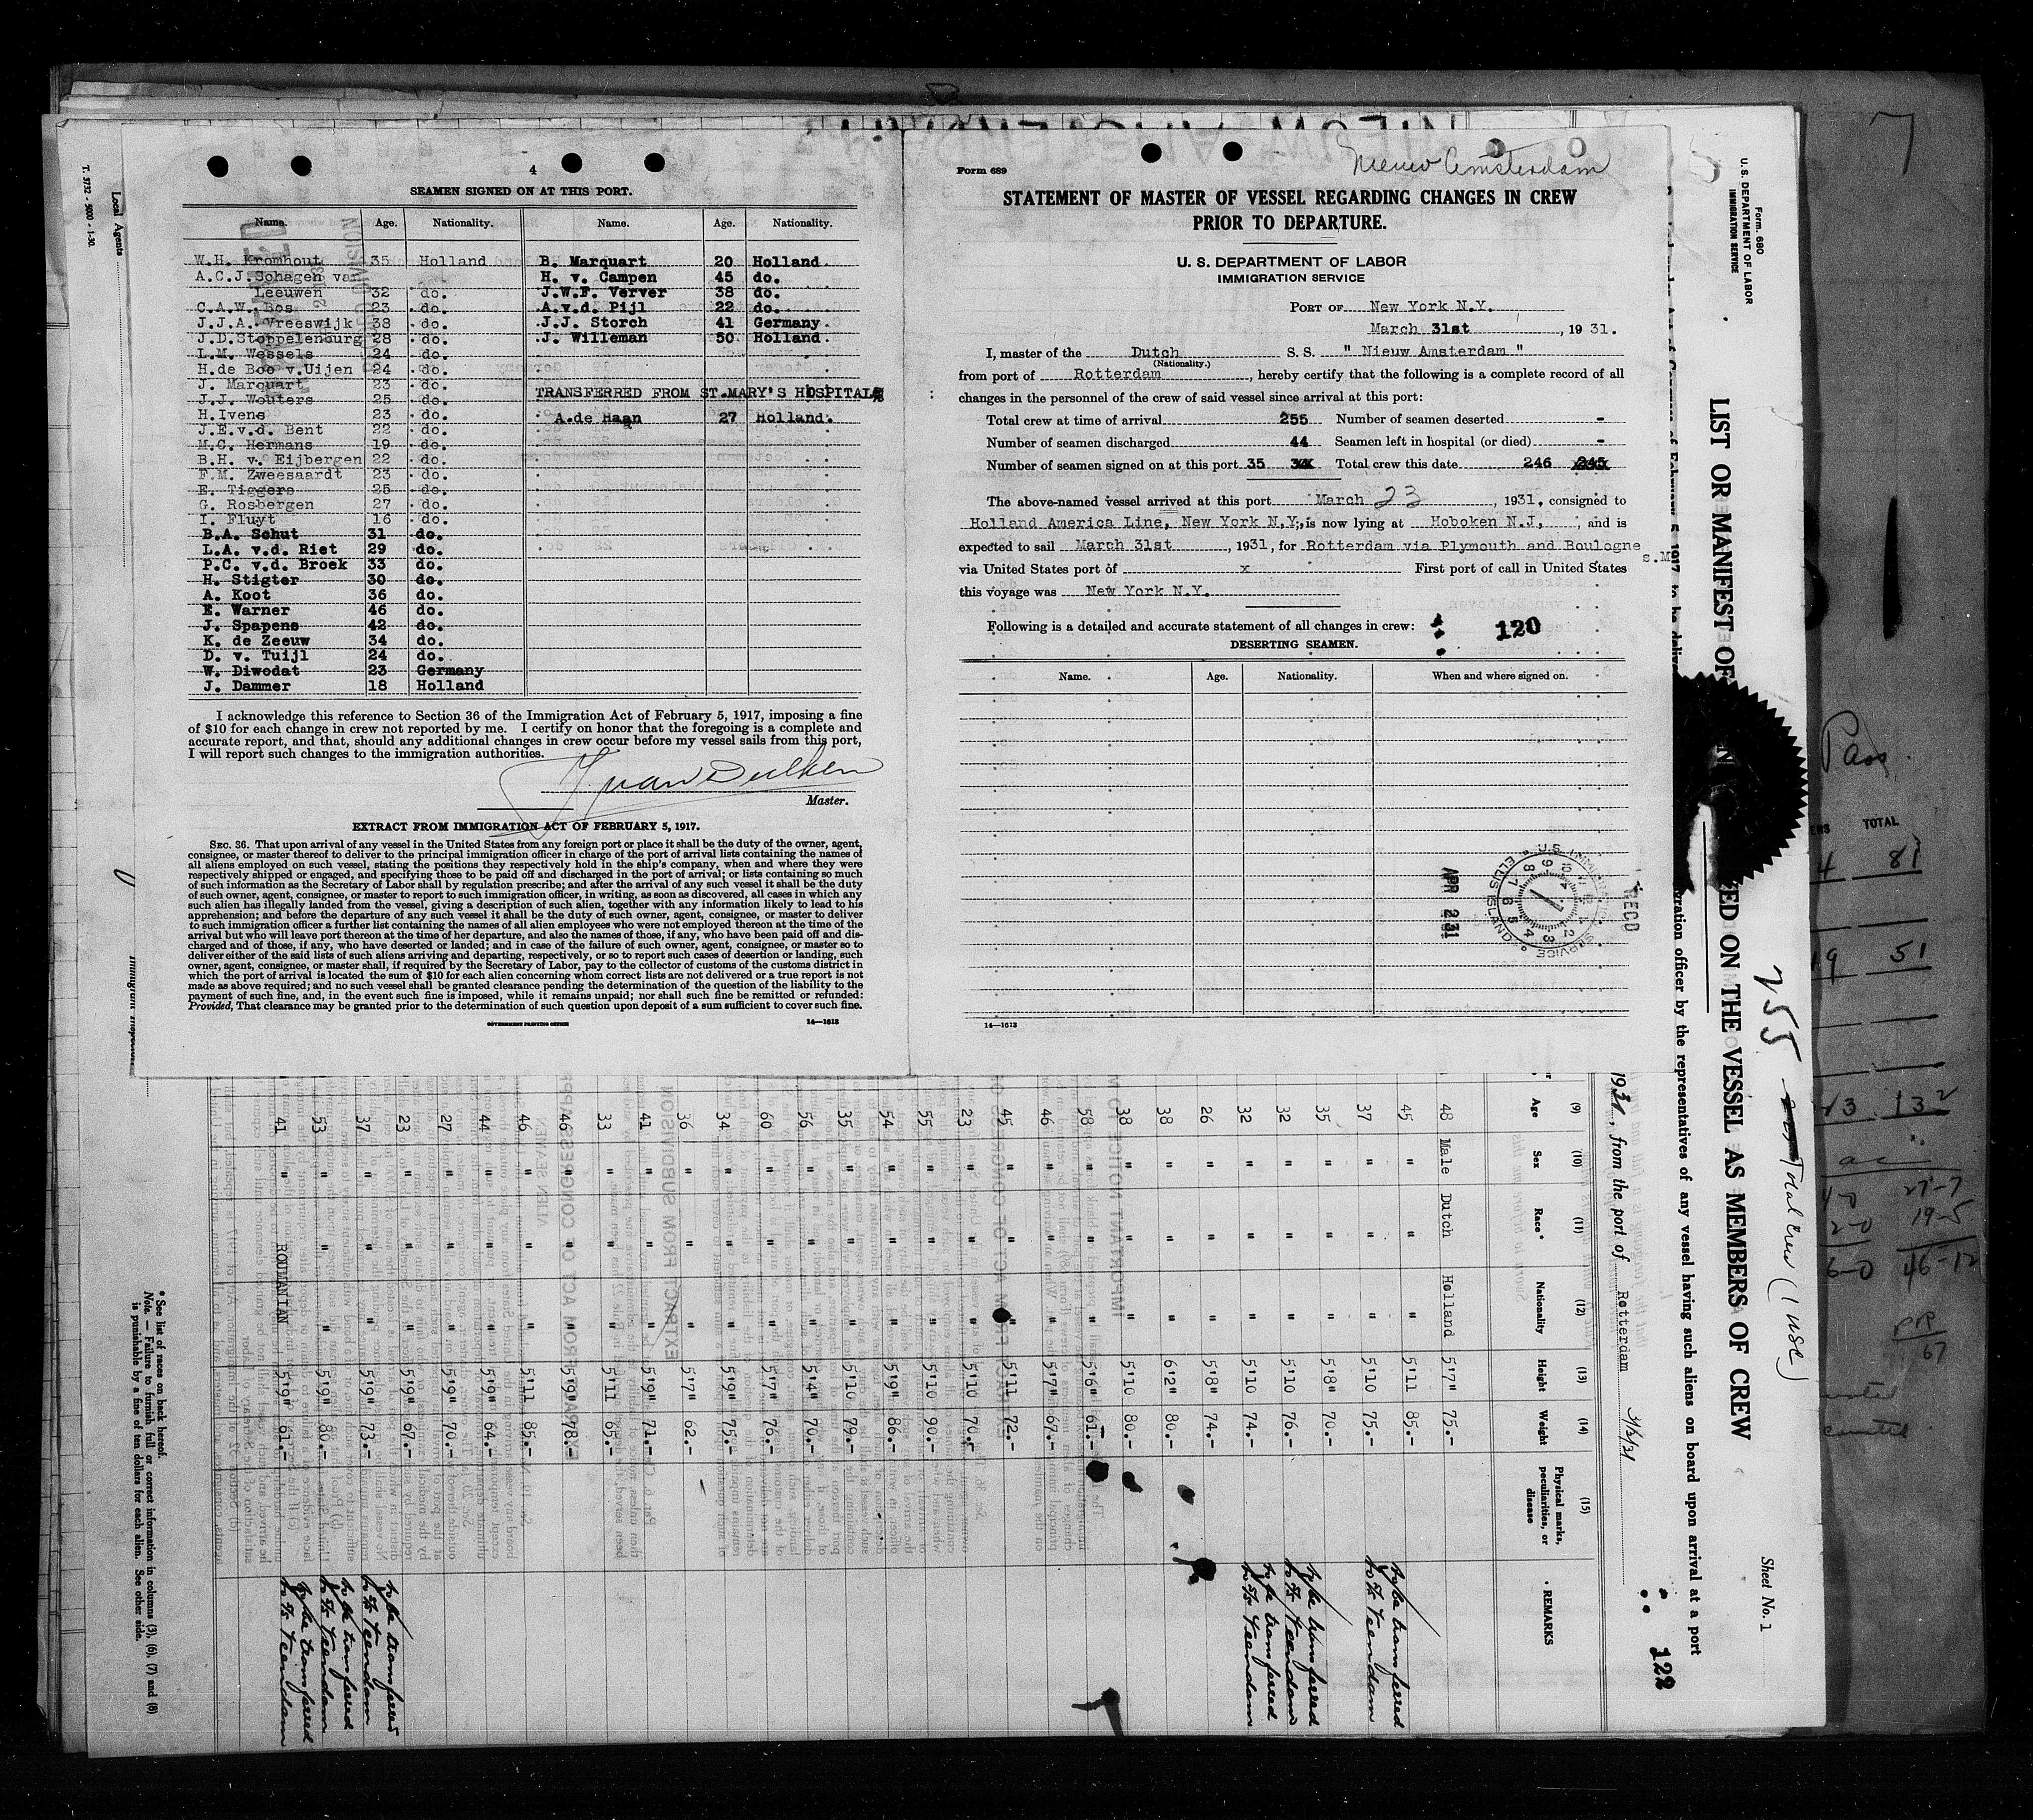 4
SEAMEN SIGNED ON AT THIS PORT.
Name. Age. Nationality. Name. Age. Nationality.
W.H. Kromhout 35 Holland B. Marquart 20 Holland.
A.C.J. Schagen van H. v. Campen 45 do.
Leeuwen 32 do. J.W.F. Verver 38 do.
C.A.W. Bos 23 do. A.v.d. Pijl 22 do.
J.J.A. Vreeswijk 38 do. J.J. Storch 41 Germany.
J.D.Stoppelenburg 28 do. J. Willeman 50 Holland.
L.M. Wessels 24 do.
H.de Boo v.Uijen 24 do.
J. Marquart 23 do. TRANSFERRED FROM ST.MARY'S HOSPITAL
J.J. Wouters 25 do.
H.Ivens 23 do. A.de Haan 27 Holland.
J.E.v.d. Bent 22 do.
M.C. Hermans 19 do.
B.H. v. Eijbergen 22 do.
F.M. Zweesaardt 23 do.
E. Tiggers 25 do.
G. Rosbergen 27 do.
I. Fluyt 16 do.
B.A. Schut 31 do.
L.A. v.d. Riet 29 do.
P.C. v.d. Broek 33 do.
H. Stigter 30 do.
A. Koot 36 do.
E. Warner 46 do.
J. Spapens 42 do.
K. de Zeeuw 34 do.
D. v. Tuijl 24 do.
W. Diwodat 23 Germany
J. Dammer 18 Holland
I acknowledge this reference to Section 36 of the Immigration Act of February 5, 1917, imposing a fine
of $10 for each change in crew not reported by me. I certify on honor that the foregoing is a complete and
accurate report, and that, should any additional changes in crew occur before my vessel sails from this port,
I will report such changes to the immigration authorities.
Master.
EXTRACT FROM IMMIGRATION ACT OF FEBRUARY 5, 1917.
SEC. 36. That upon arrival of any vessel in the United States from any foreign port or place it shall be the duty of the owner, agent,
consignee, or master thereof to deliver to the principal immigration officer in charge of the port of arrival lists containing the names of
all aliens employed on such vessel, stating the positions they respectively hold in the ship's company, when and where they were
respectively shipped or engaged, and specifying those to be paid off and discharged in the port of arrival; or lists containing so much
of such information as the Secretary of Labor shall by regulation prescribe; and after the arrival of any such vessel it shall be the duty
of such owner, agent, consignee, or master to report to such immigration officer, in writing, as soon as discovered, all cases in which any
such alien has illegally landed from the vessel, giving a description of such alien, together with any information likely to lead to his
apprehension; and before the departure of any such vessel it shall be the duty of such owner, agent, consignee, or master to deliver
to such immigration officer a further list containing the names of all alien employees who were not employed thereon at the time of the
arrival but who will leave port thereon at the time of her departure, and also the names of those, if any, who have been paid off and dis-
charged and of those, if any, who have deserted or landed; and in case of the failure of such owner, agent, consignee, or master so to
deliver either of the said lists of such aliens arriving and departing, respectively, or so to report such cases of desertion or landing, such
owner, agent, consignee, or master shall, if required by the Secretary of Labor, pay to the collector of customs of the customs district in
which the port of arrival is located the sum of $10 for each alien concerning whom correct lists are not delivered or a true report is not
made as above required; and no such vessel shall be granted clearance pending the determination of the question of the liability to the
payment of such fine, and, in the event such fine is imposed, while it remains unpaid; nor shall such fine be remitted or refunded:
Provided, That clearance may be granted prior to the determination of such question upon deposit of a sum sufficient to cover such fine.
GOVERNMENT PRINTING OFFICE 14—1613
Form 689
Nieuw Amsterdam
STATEMENT OF MASTER OF VESSEL REGARDING CHANGES IN CREW
PRIOR TO DEPARTURE.
U. S. DEPARTMENT OF LABOR
IMMIGRATION SERVICE
PORT OF New York N.Y.
March 31st, 1931.
I, master of the Dutch S. S. " Nieuw Amsterdam "
(Nationality.)
from port of Rotterdam, hereby certify that the following is a complete record of all
changes in the personnel of the crew of said vessel since arrival at this port:
Total crew at time of arrival 255 Number of seamen deserted -
Number of seamen discharged 44 Seamen left in hospital (or died) -
Number of seamen signed on at this port 35 Total crew this date 246 245
The above-named vessel arrived at this port March 23, 1931, consigned to
Holland America Line, New York N.Y., is now lying at Hoboken N.J., and is
expected to sail March 31st, 1931, for Rotterdam via Plymouth and Boulogne s.M
via United States port of x First port of call in United States
this voyage was New York N.Y.
Following is a detailed and accurate statement of all changes in crew: 120
DESERTING SEAMEN.
Name. Age. Nationality. When and where signed on.
APR 2 31
U.S. IMMIGRATION SERVICE ELLIS ISLAND
REC'D
14—1613
Form 680
U. S. DEPARTMENT OF LABOR
IMMIGRATION SERVICE
LIST OR MANIFEST OF
ED ON THE VESSEL AS MEMBERS OF CREW
255 Total Crew (1 USC)
Sheet No. 1
ration officer by the representatives of any vessel having such aliens on board upon arrival at a port
1931, from the port of Rotterdam
122
(9) (10) (11) (12) (13) (14) (15)
Age Sex Race* Nationality Height Weight Physical marks, peculiarities, or disease REMARKS
48 Male Dutch Holland 5'7" 75.-
45 " " " 5'11 85.-
37 " " " 5'10 75.- to be transferred to s/s Veendam
35 " " " 5'8" 70.-
32 " " " 5'10 76.- to be transferred to s/s Veendam
32 " " " 5'10 74.- to be transferred to s/s Veendam
26 " " " 5'8" 74.-
38 " " " 6'2" 80.-
38 " " " 5'10 80.-
58 " " " 5'6" 61.-
46 " " " 5'7" 67.-
45 " " " 5'11 72.-
23 " " " 5'10 70.-
55 " " " 5'10 90.-
54 " " " 5'9" 86.-
35 " " " 5'10 79.-
56 " " " 5'4" 70.-
60 " " " 5'7" 76.-
34 " " " 5'9" 75.-
36 " " " 5'7" 62.-
41 " " " 5'9" 71.-
33 " " " 5'11 65.-
46 " " " 5'9" 78.-
46 " " " 5'11 85.-
44 " " " 5'9" 64.-
27 " " " 5'9" 70.-
23 " " " 5'9" 67.-
37 " " " 5'9" 73.- to be transferred to s/s Veendam
53 " " " 5'9" 80.- to be transferred to s/s Veendam
41 " ROUMANIAN " 5'9" 61.- to be transferred to s/s Veendam
* See list of races on back hereof.
Note. — Failure to furnish full or correct information in columns (3), (6), (7) and (8)
is punishable by a fine of ten dollars for each alien. See other side.
T. 3732 - 5000 - 1-30.
Local Agents
Immigrant Inspector
Pass
TOTAL
4 81
19 51
13 132
27-7
2-0 19-5
6-0 46-12
67